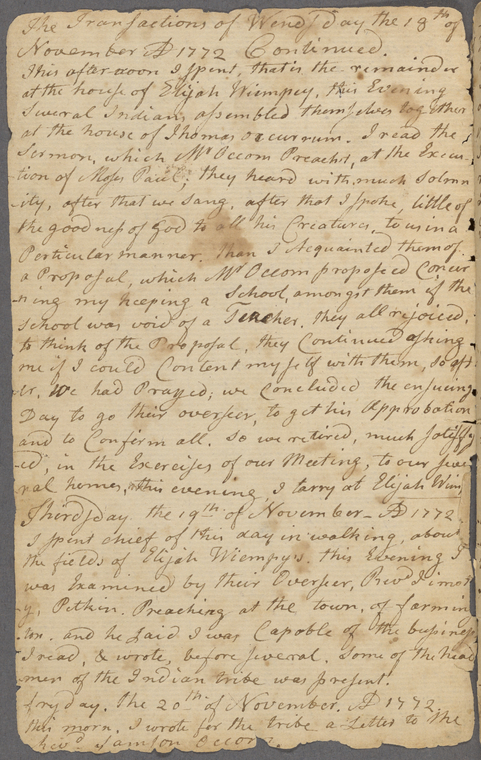 The Transactions of Wendsday the 18th of
November AD 1772 Continued.
This afternoon I spent, that is the remainder
at the house of Elijah Wiempey, this Evening
Several Indians assembled themselves together
at the house of Thomas Occurrum. I read the
Sermon, which Mr Occom Preacht, at the Execu-
tion of Moses Paul; they heard with much Solmn
ity, after that we Sang, after that I spoke, little of
the goodness of God to all his Creatures, to us in a
Perticular manner. than I Acquainted them of
a Proposal, which Mr Occom proposed Concur
ning my keeping a School, amongst them if the
School was void of a Teacher. they all rejoiced,
to think of the Proposal, they Continued asking
me if I could Content my self with them, so aft
er, We had Prayed; we Concluded the ensuing
Day to go their overseer, to get his Approbation
and to Confirm all. So we retired, much sotisfy
-ed, in the Exercises of our Meeting, to our seve
ral homes, this evening, I tarry at Elijah Wim
Thirdsday the 19th of November AD 1772
I spent chief of this day in walking, about
the fields of Elijah Wiempys. this Evening I
was Examined by their Overseer, Revd Timoth
y, Pitkin. Preaching at the town, of farmin
ton. and he said I was Capable of the bussiness
I read, & wrote, before several. Some of the head
men of the Indian tribe was present.
fryday. the 20th of November. AD 1772.
this morn. I wrote for the tribe a Letter to the
Revd Samson Occom.